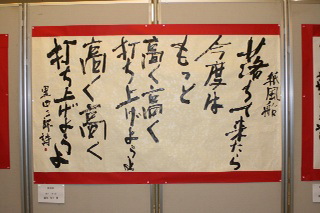 紙風船
落ちて来たら
今度は
もっと
高く高く
打ち上げようよ
高く高く
打ち上げようよ
黒田三郎詩